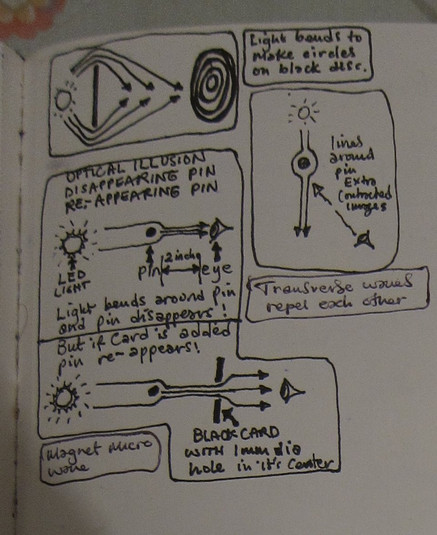 Light bends to
make circles
on black disc.
lines
around
pin
Extra
contracted
images
OPTICAL ILLUSION
DISAPPEARING PIN
RE-APPEARING PIN
LED
LIGHT
pin
2 inch
eye
Light bends around pin
and pin disappears!
Transverse waves
repel each other
But if Card is added
pin re-appears!
BLACK CARD
WITH 1mm dia
hole in it's center
Magnet micro
wave